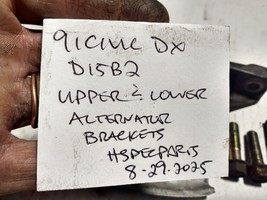 91 CIVIC DX
D15B2
UPPER & LOWER
ALTERNATOR
BRACKETS
HSPECPARTS
8-29-2025